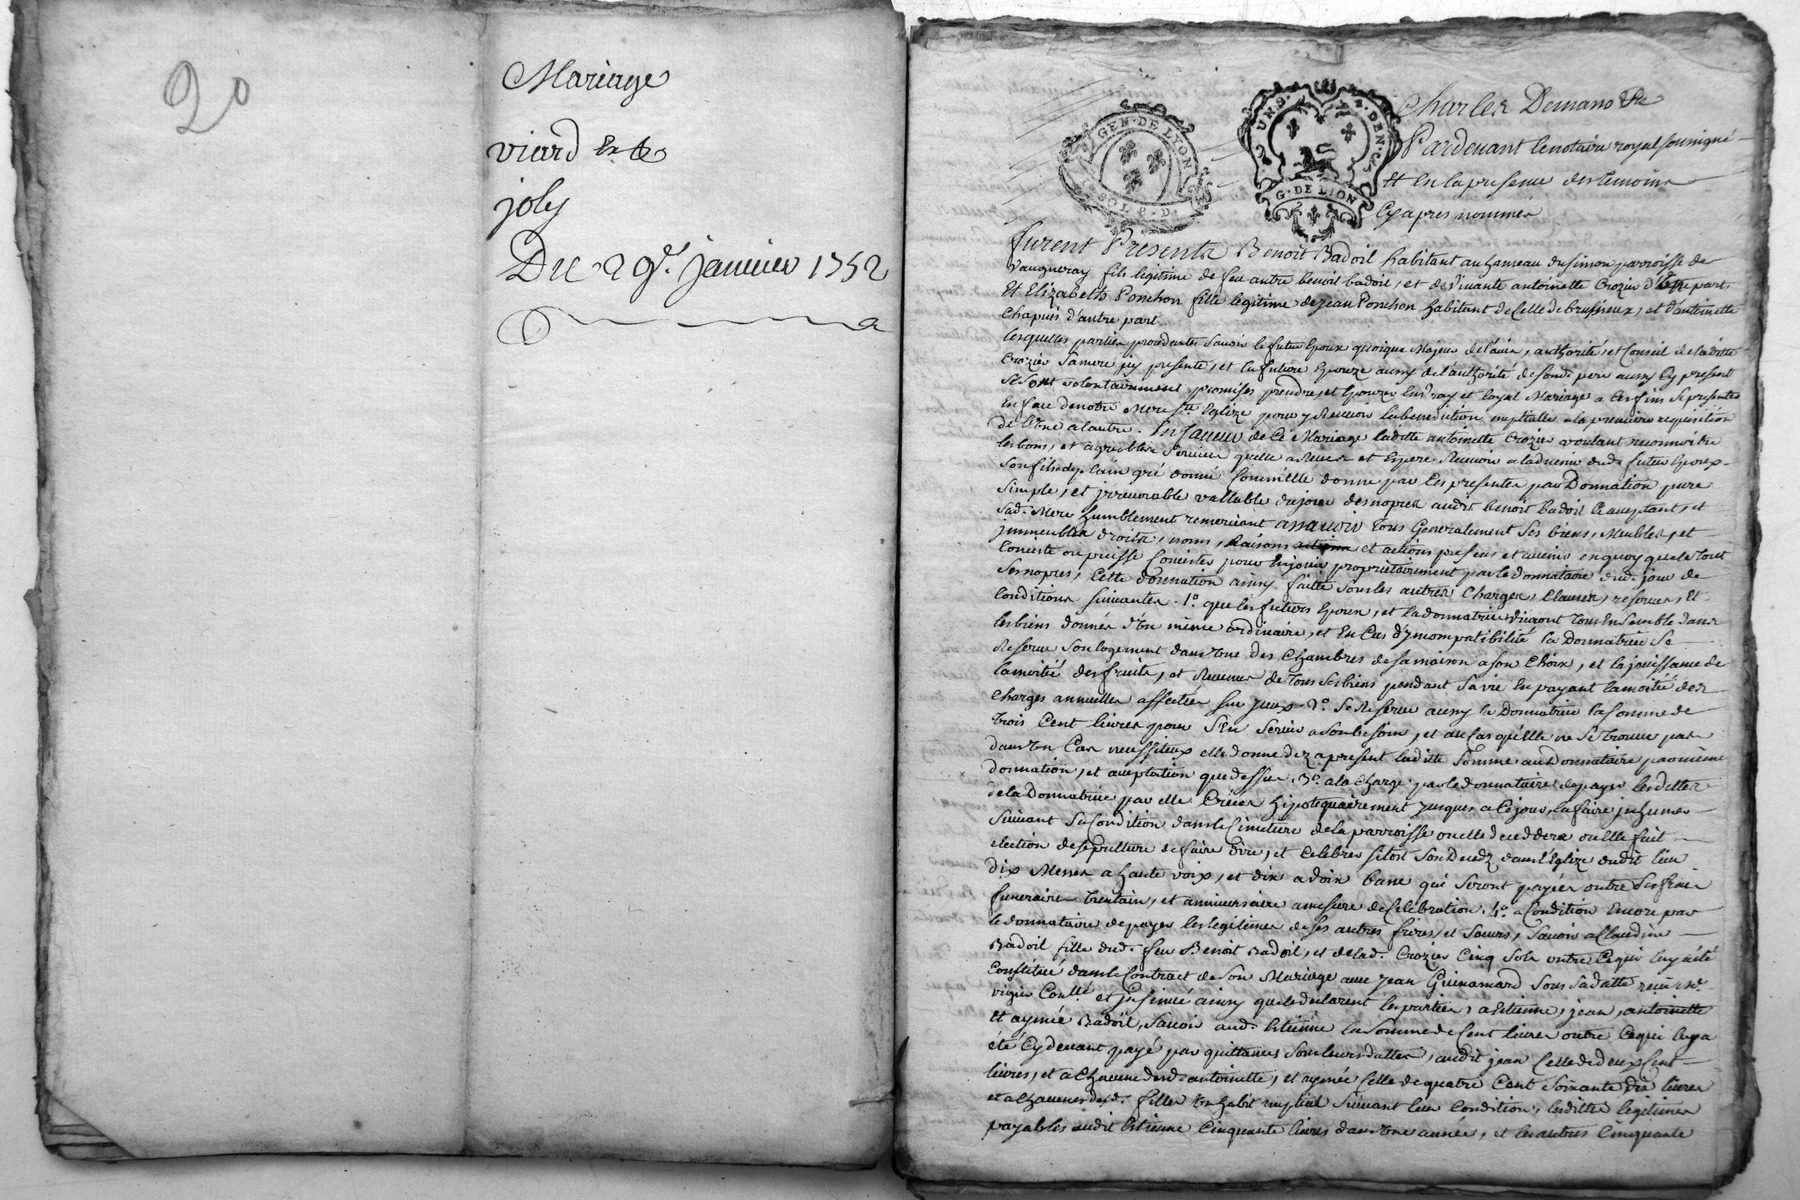 20
Mariage
viard et
joly
Du 29e. janvier 1752
GEN. DE LYON
SOL 8 D.
UN S. 4. DEN.
G. DE LION
Charles Demano
Pardevant le notaire royal soussigné
Et en la presence des temoins
Cyapres nommés
furent Presents Benoit Badoil habitant au hameau du simon parroisse de
Vaugneray fils legitime de feu autre benoit badoil, et de vivante antoinette Crozier d'une part,
Et Elizabeth Ponchon fille legitime de jean Ponchon habitant de Celle de brussieux, et d'antoinette
Chapuis d'autre part
lesquelles parties procedantes Savoir le futur Epoux quoique Majeur de l'avis, authorité, et Conseil de ladite
Crozier Sa mere icy presente, et la future Epouze aussy de l'authorité de son d. pere aussy Cy present
Se sont volontairement promises prendre, et Epouzer En vray et loyal Mariage a Ces fins Se presenter
En face de notre Mere Ste Eglize pour y Recevoir la benediction nuptialle a la premiere requisition
de l'Une a l'autre. En faveur de Ce Mariage ladite antoinette Crozier voulant reconnoitre
les bons, et agreables Services quelle a Receu et Espere Recevoir a l'advenir dud. futur Epoux
Son fils de plain gré donné Comm'elle donne par Ces presentes par Donnation pure
Simple, et irrevocable vallable du jour des nopces audit benoit badoil Ce acceptant, et
Sad. Mere humblement remerciant assavoir tous Generalement Ses biens, Meubles, et
immeubles droits, noms, Raisons et actions presens et avenir en quoy que le tout
Consiste ou puisse Consister pour En jouir proprietairement par le donnataire dud. jour de
Ses nopces, Cette donnation ainsy faitte Sous les autres Charges, Clauses, reserves, Et
Conditions Suivantes. 1°. que les futurs Epoux, et la donnatrice vivront tous Ensemble dans
les biens donnés d'Un même ordinaire, et En Cas d'jncompatibilité la Donnatrice Se
Reserve Son logement dans Une des Chambres de Sa maison a son Choix, et la jouissance de
la moitié des fruits, et Revenus de tous Ses biens pendant Sa vie En payant la moitié des
Charges annuelles affectées Sur yceux 2°. Se Reserve aussy la Donnatrice la Somme de
trois Cent livres pour S'En Servir a Son besoin, et au Cas qu'Elle ne Se trouve pas
dans Un Cas necessiteux elle donne dez a present ladite Somme au Donnataire par même
donnation, et acceptation que dessus. 3°. a la Charge par le donnataire de payer les dettes
de la Donnatrice par elle Créées Hipotequairement jusques a Ce jour, la faire jnhumer
Suivant Sa Condition dans le Cimetiere de la parroisse ou elle deceddera ou Elle fait
election de sepulture de faire dire, et Celebrer Sitost Son Decedz dans l'Eglize dudit lieu
dix Messes a haute voix, et dix a voix basse qui Seront payées outre Ses frais
funeraires trentain, et anniversaire a mesure de Celebration. 4°. a Condition Encore par
le donnataire de payer les legitimes de Ses autres freres, et Soeurs, Savoir a Claudine
Badoil fille dud. feu Benoit Badoil, et de lad. Crozier Cinq Sols outre Ce qui luy a été
Constitué dans le Contract de Son Mariage avec jean Guinamard Sous Sa datte reçu
et jnsinué ainsy que le declarent les parties, a Etienne, jean, antoinette
Et aymée Badoil, Savoir aud. Etienne la Somme de Cent livres outre Ce qui Cepa
été Cydevant payé par quittances Sous leurs dattes, audit jean Celle de deux Cent
livres, et a Chacune desd. antoinette, et aymée Celle de quatre Cent Soixante dix livres
et a Chacunes desd. filles Un habit nuptial Suivant leur Condition, lesdittes legitimes
payables audit Etienne Cinquante livres dans Une année, et les autres Cinquante